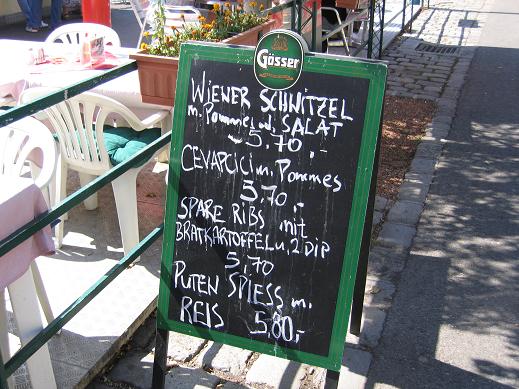 Gösser
WIENER SCHNITZEL
m. Pommes u. SALAT
5,70,-
CEVAPCICI m. Pommes
5,70
SPARE RIBS mit
BRATKARTOFFEL u. 2 DIP
5,70
PUTEN SPIESS m.
REIS 5,80,-